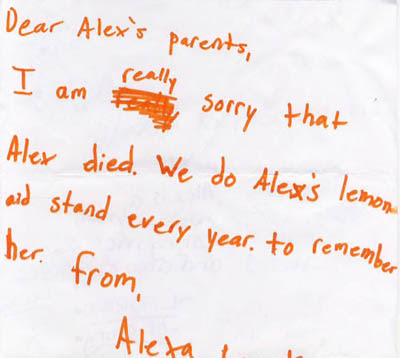 Dear Alex's parents,
I am really sorry that
Alex died. We do Alex's lemon
aid stand every year. to remember
her. from,
Alexa